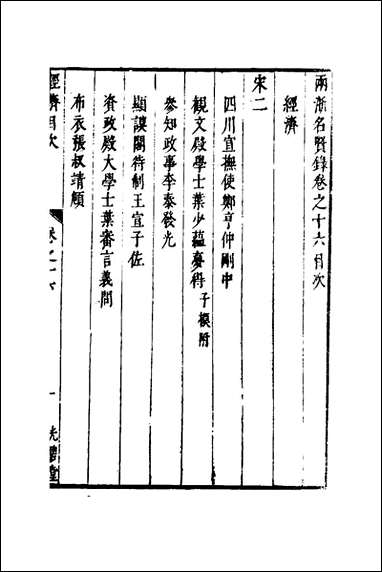 兩浙名賢錄卷之十六目次
經濟
宋二
四川宣撫使鄭亨仲剛中
觀文殿學士葉少蘊夢得子模附
參知政事李泰發光
顯謨閣待制王宣子佐
資政殿大學士葉審言義問
布衣張叔靖頠
經濟目次
卷之十六
一
光碧堂